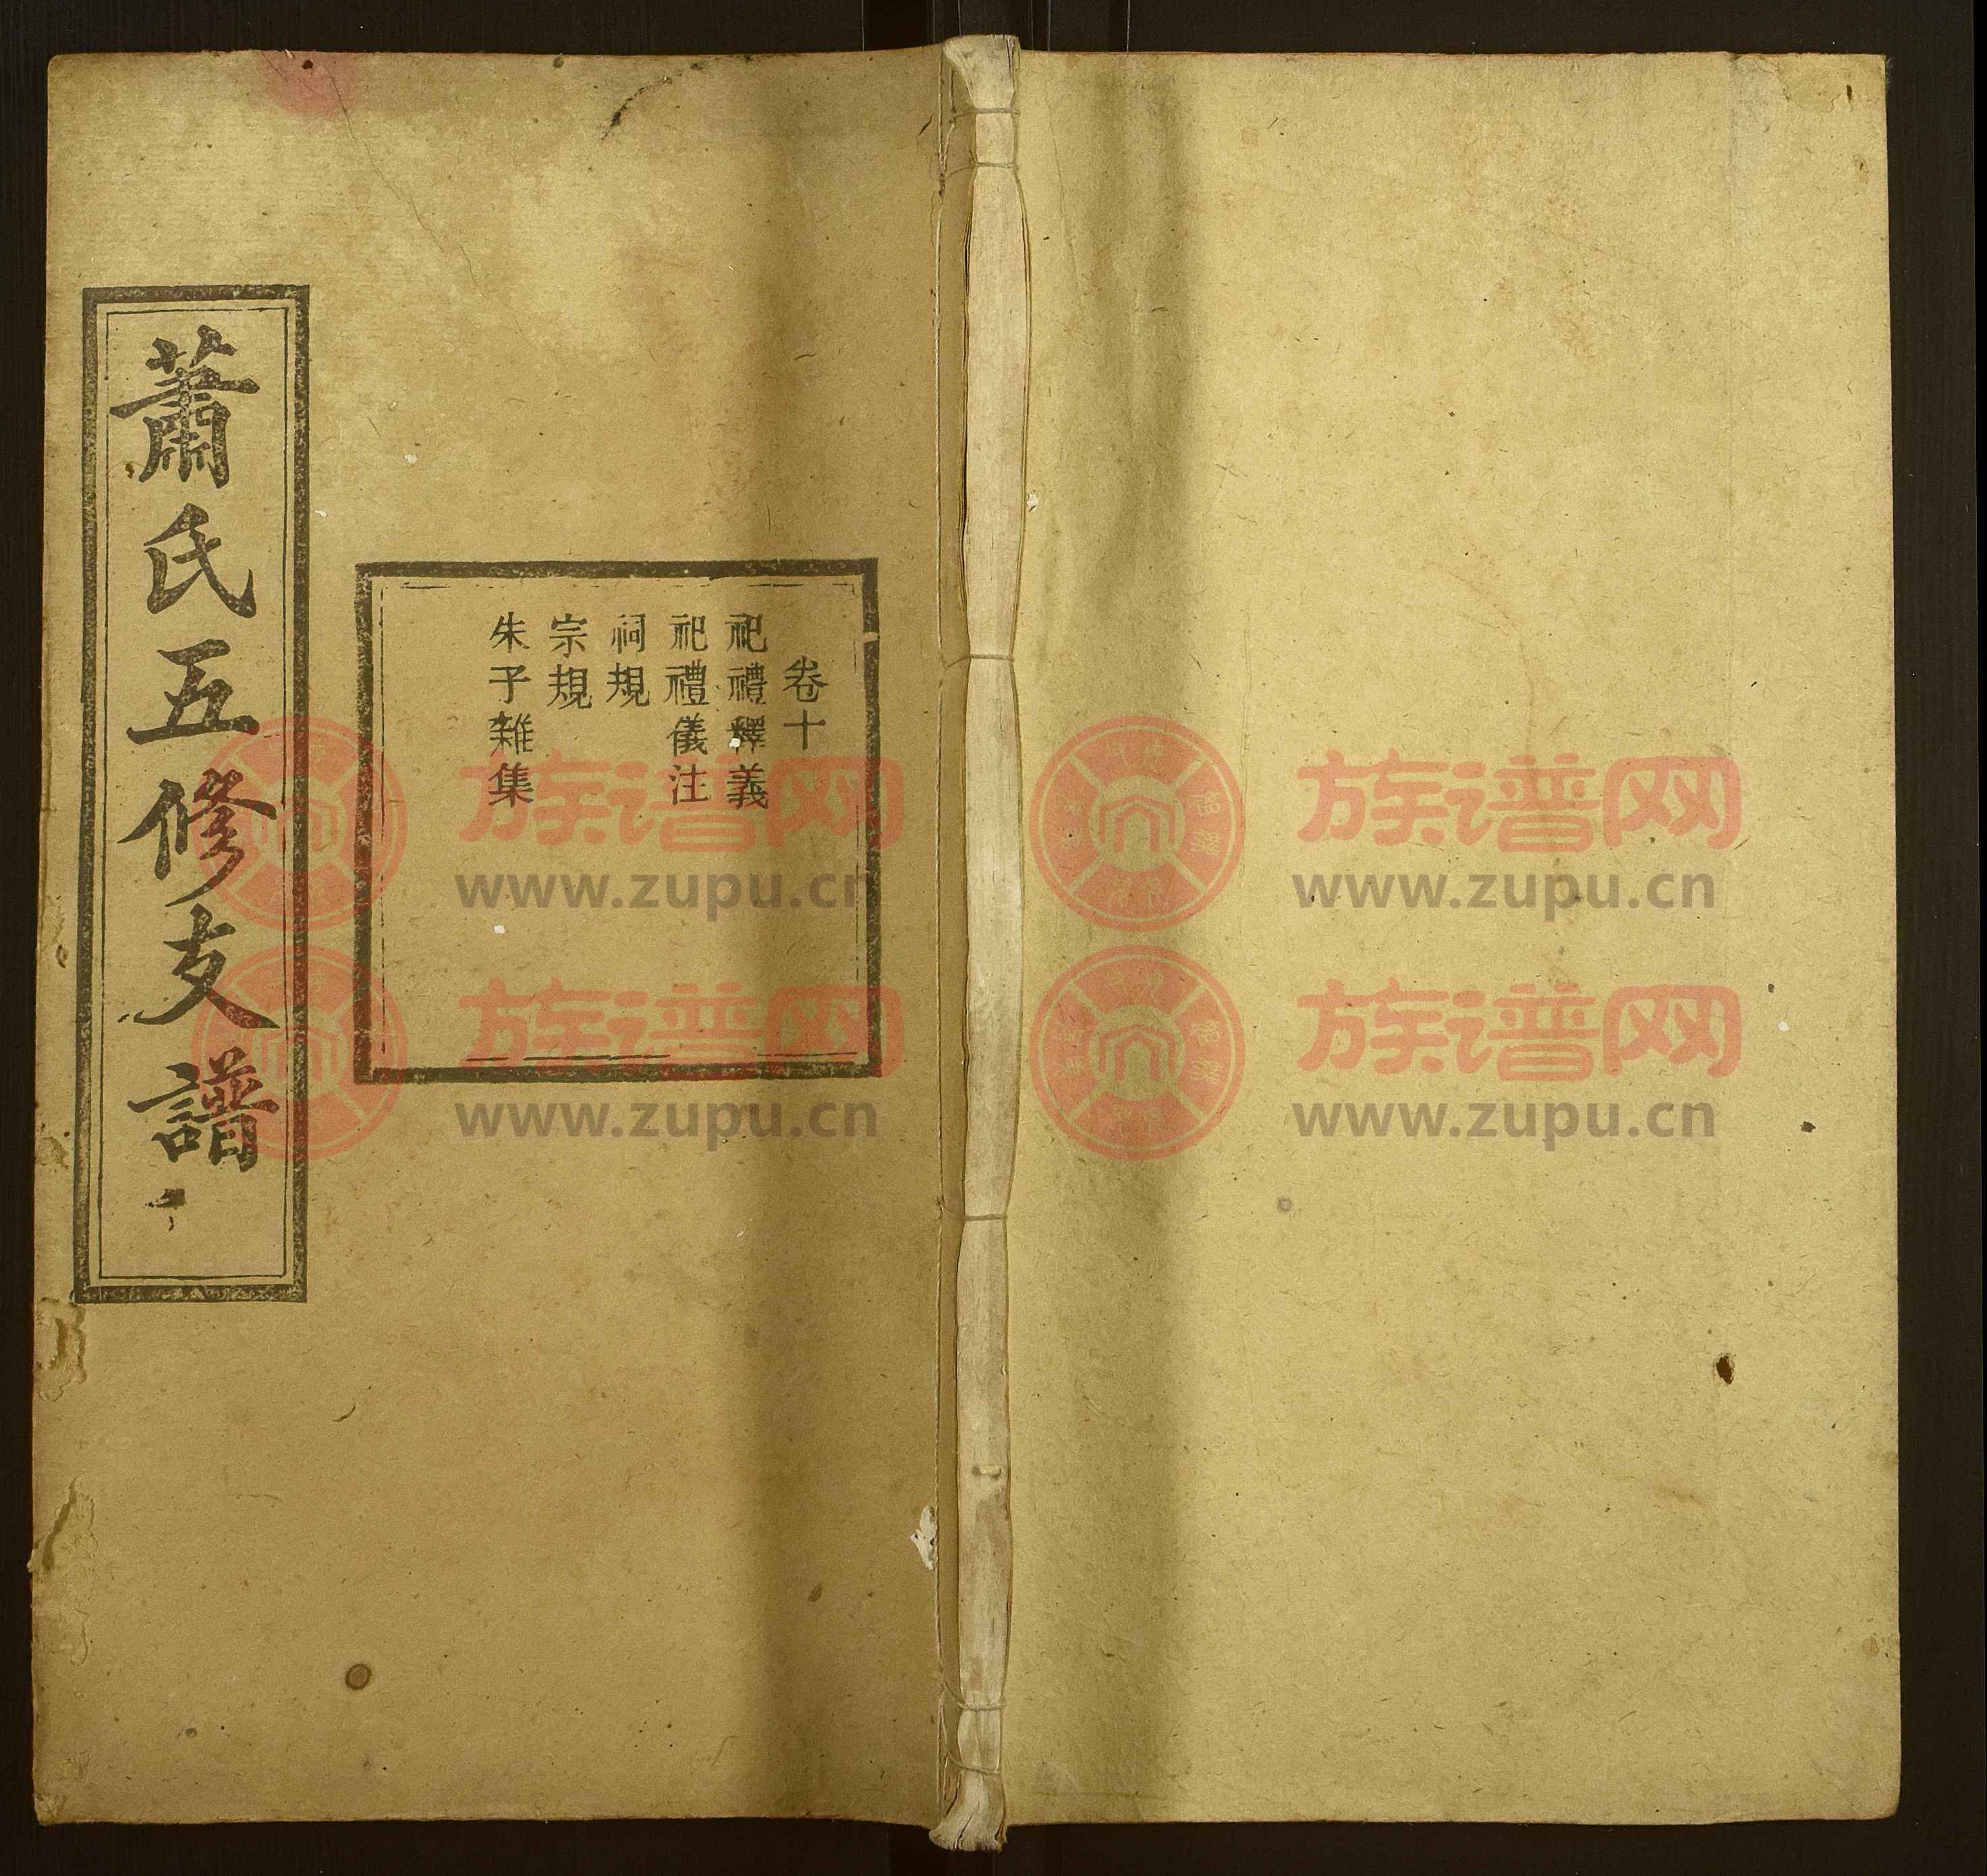 蕭氏五修支譜
卷十
祀禮釋義
祀禮儀注
祠規
宗規
朱子雜集
族谱网
www.zupu.cn
族谱网
www.zupu.cn
族谱网
www.zupu.cn
族谱网
www.zupu.cn